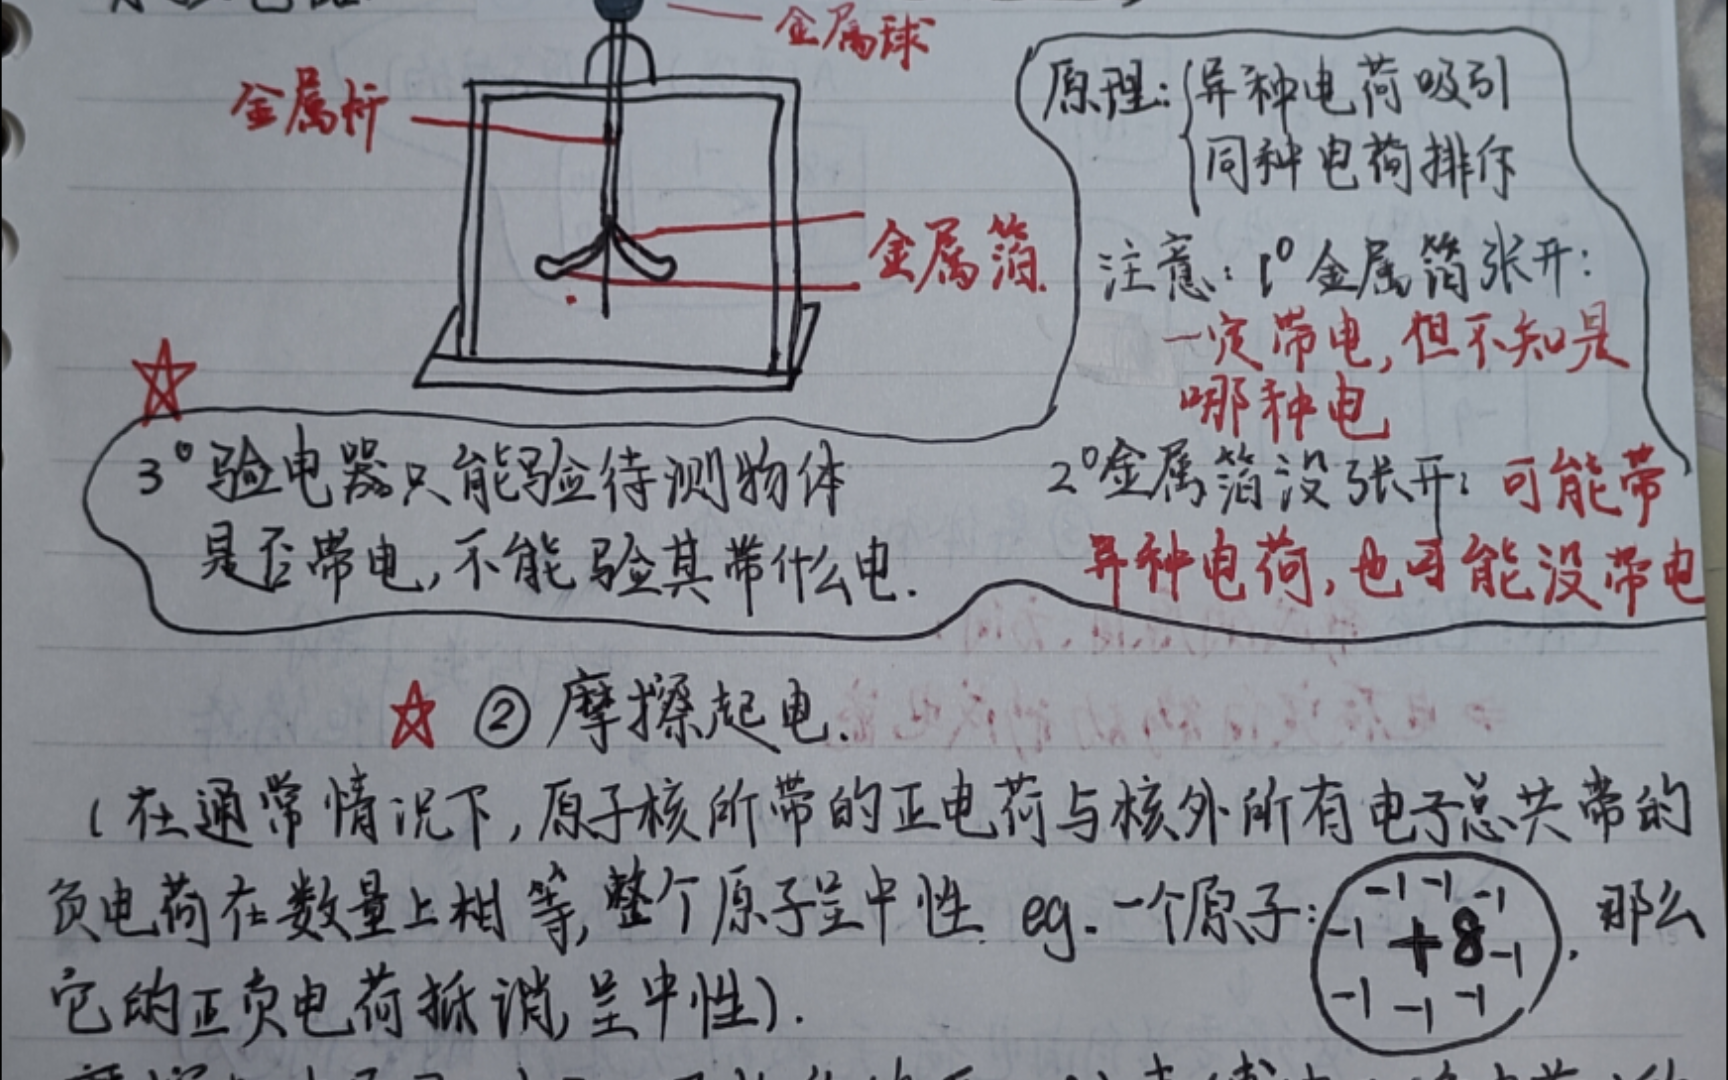 金属球
金属杆
金属箔.
原理:{异种电荷吸引
同种电荷排斥
注意:1°金属箔张开:
一定带电,但不知是
哪种电
2°金属箔没张开:可能带
异种电荷,也可能没带电
3°验电器只能验待测物体
是否带电,不能验其带什么电.
②摩擦起电.
(在通常情况下,原子核所带的正电荷与核外所有电子总共带的
负电荷在数量上相等,整个原子呈中性. eg.一个原子: , 那么
-1 -1 -1
-1 +8 -1
-1 -1 -1
它的正负电荷抵消,呈中性).